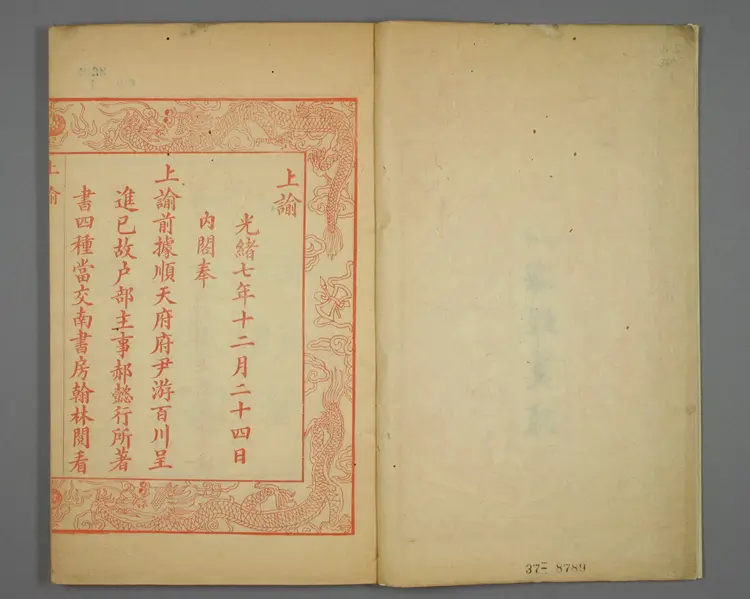 上諭
光緒七年十二月二十四日
內閣奉
上諭前據順天府府尹游百川呈
進已故户部主事郝懿行所著
書四種當交南書房翰林閱看
上諭
37- 8789